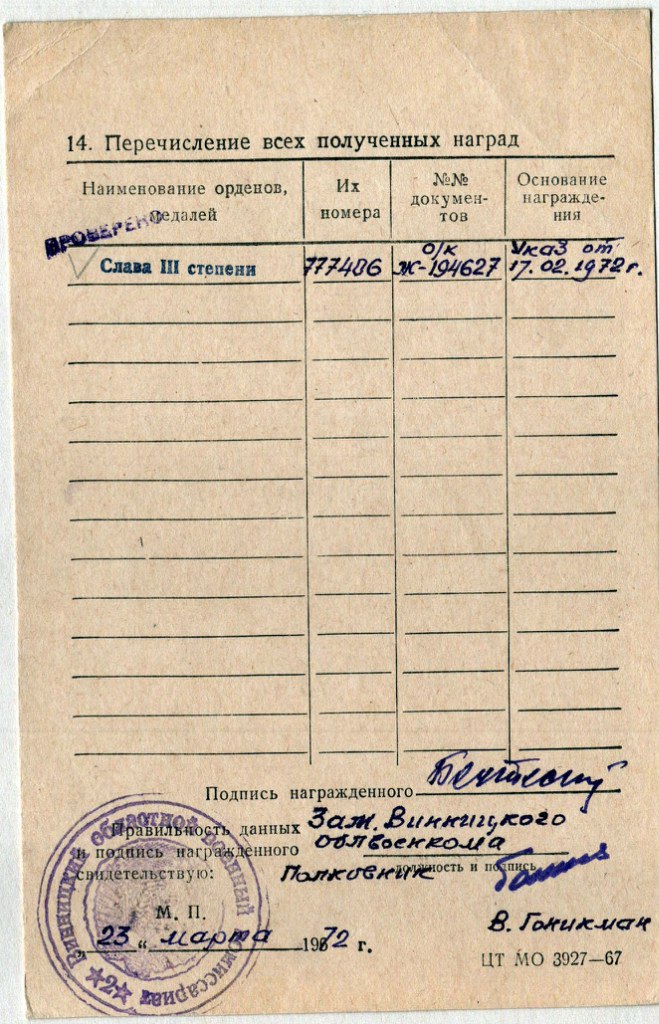 14. Перечисление всех полученных наград
Наименование орденов, медалей
Их номера
№№ документов
Основание награждения
ПРОВЕРЕНО
Слава III степени 777486 о/к Ж-194627 Указ от 17.02.1972 г.
Подпись награжденного
Правильность данных
и подпись награжденного
свидетельствую:
Зам. Винницкого
облвоенкома
должность и подпись
Полковник
В. Гоникман
М. П.
„ 23 “ марта 1972 г.
ЦТ МО 3927—67
Винницкий областной военный комиссариат
★2★